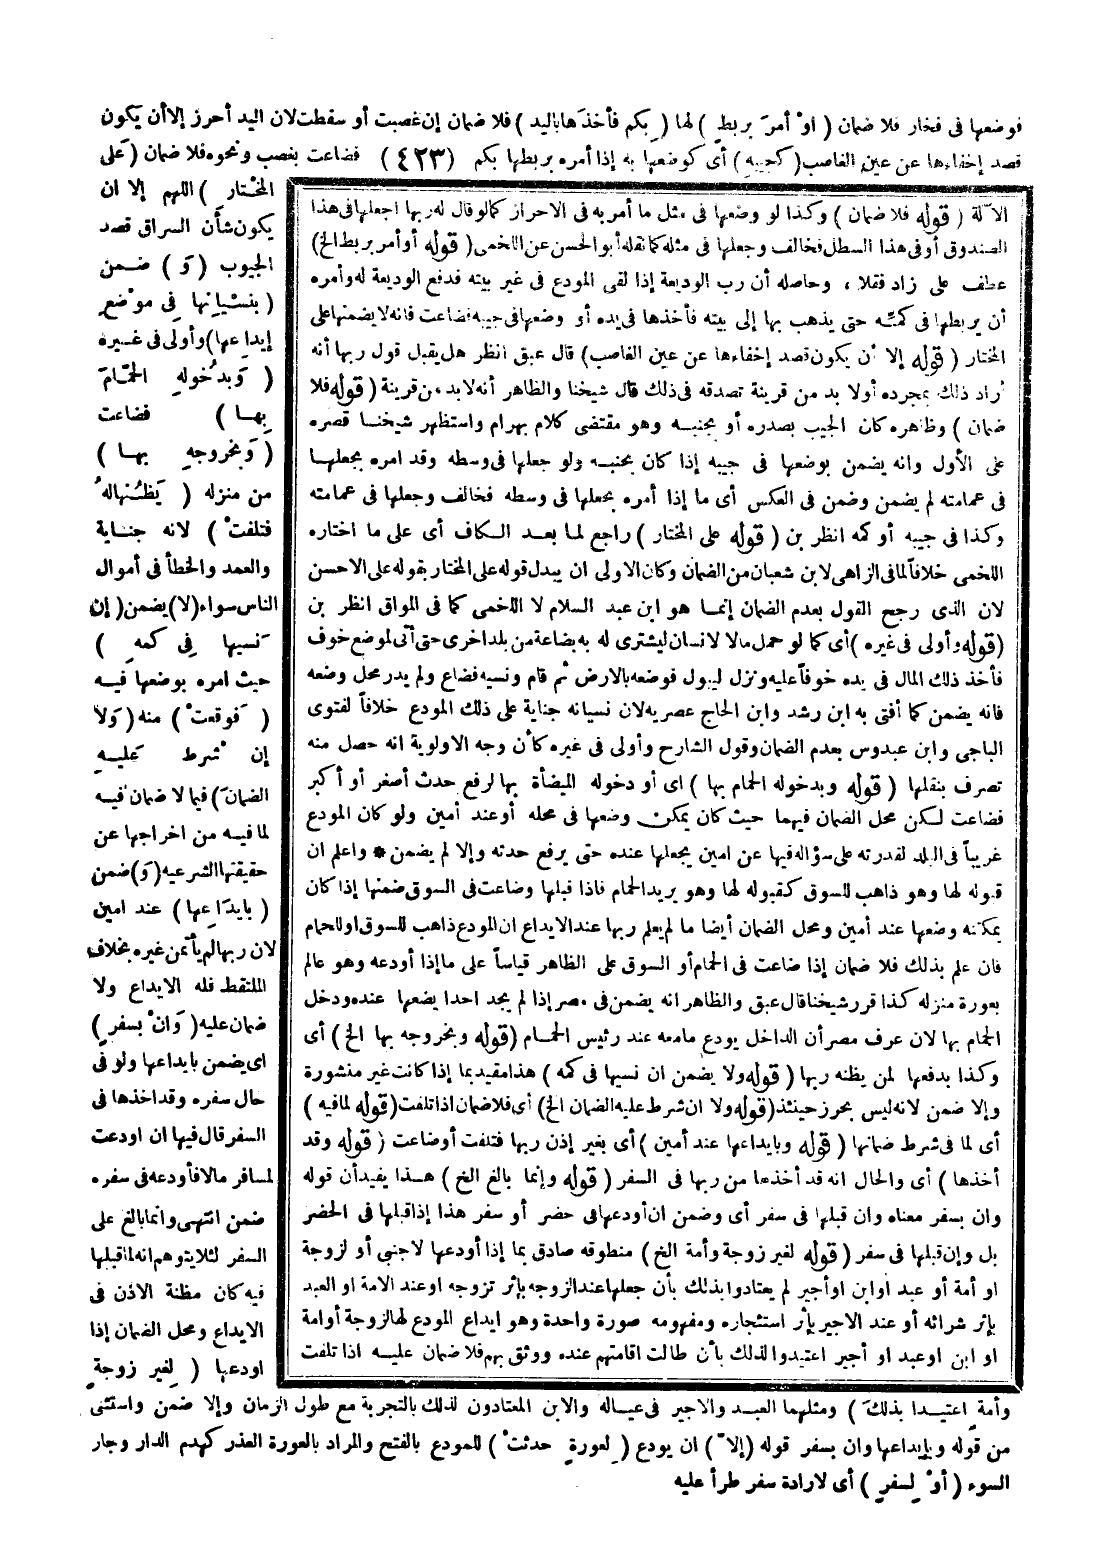 فوضعها فى فخار فلا ضمان ( اوْ أمرَ بربطٍ ) لها ( بِكم فأخذَها باليد ) فلا ضمان إن غصبت أو سقطت لان اليد أحرز إلا أن يكون
قصد إخفاءها عن عين الغاصب ( كجيبهِ ) أى كوضعها به إذا أمره بربطها بكم (٤٢٣) فضاعت بغصب ونحوه فلا ضمان ( عَلى
المخْتارِ ) اللهم إلا ان
يكون شأن السراق قصد
الجيوب ( وَ ) ضمن
( بنسْيانِها فِى موْضعِ
إيداعِها ) وأولى فى غيره
( وَبدُخولهِ الحمّامَ
بِها ) فضاعت
( وَبخروجهِ بها )
من منزله ( يَظنُّنها لهُ
فتلفتْ ) لانه جناية
والعمد والخطأ فى أموال
الناس سواء ( لا ) يضمن ( إن
نَسيها فِى كمهِ )
حيث امره بوضعها فيه
( فَوقعتْ ) منه ( وَلا
إن شَرط عَليهِ
الضمانَ ) فيما لا ضمان فيه
لما فيه من اخراجها عن
حقيقتها الشرعيه ( وَ ) ضمن
( بايدَاعِها ) عند امين
لان ربها لم يأتمن غيره بخلاف
الملتقط فله الايداع ولا
ضمان عليه ( وَانْ بسفرٍ )
اى يضمن بايداعها ولو فى
حال سفره وقد اخذها فى
السفر قال فيها ان اودعت
لمسافر مالا فأودعه فى سفره
ضمن انتهى وانما بالغ على
السفر لئلا يتوهم انه لما قبلها
فيه كان مظنة الاذن فى
الايداع ومحل الضمان إذا
اودعها ( لِغير زوجةٍ
الآلة ( قوله فلا ضمان ) وكذا لو وضعها فى مثل ما أمر به فى الاحراز كما لو قال له ربها اجعلها فى هذا
الصندوق أو فى هذا السطل فخالف وجعلها فى مثله كما نقله أبو الحسن عن اللخمى ( قوله أو أمر بربط الخ )
عطف على زاد فقلا ، وحاصله أن رب الوديعة إذا لقى المودع فى غير بيته فدفع الوديعة له وأمره
أن يربطها فى كمه حتى يذهب بها إلى بيته فأخذها فى يده أو وضعها فى جيبه فضاعت فانه لا يضمنها على
المختار ( قوله إلا أن يكون قصد إخفاءها عن عين الغاصب ) قال عبق انظر هل يقبل قول ربها أنه
أراد ذلك بمجرده أولا بد من قرينة تصدقه فى ذلك قال شيخنا والظاهر أنه لابد من قرينة ( قوله فلا
ضمان ) وظاهره كان الجيب بصدره أو بجنبه وهو مقتضى كلام بهرام واستظهر شيخنا قصره
على الأول وانه يضمن بوضعها فى جيبه إذا كان بجنبه ولو جعلها فى وسطه وقد امره بجعلها
فى عمامته لم يضمن وضمن فى العكس أى ما إذا أمره بجعلها فى وسطه فخالف وجعلها فى عمامته
وكذا فى جيبه أو كمه انظر بن ( قوله على المختار ) راجع لما بعد الكاف أى على ما اختاره
اللخمى خلافا لما فى الزاهى لابن شعبان من الضمان وكان الاولى ان يبدل قوله على المختار بقوله على الاحسن
لان الذى رجح القول بعدم الضمان إنما هو ابن عبد السلام لا اللخمى كما فى المواق انظر بن
( قوله وأولى فى غيره ) أى كما لو حمل مالا لانسان ليشترى له به بضاعة من بلد اخرى حتى أتى لموضع خوف
فأخذ ذلك المال فى يده خوفا عليه ونزل ليبول فوضعه بالارض ثم قام ونسيه فضاع ولم يدر محل وضعه
فانه يضمن كما أفتى به ابن رشد وابن الحاج عصريه لان نسيانه جناية على ذلك المودع خلافا لفتوى
الباجى وابن عبدوس بعدم الضمان وقول الشارح وأولى فى غيره كأن وجه الاولوية انه حصل منه
تصرف بنقلها ( قوله وبدخوله الحمام بها ) اى أو دخوله الميضأة بها لرفع حدث أصغر أو أكبر
فضاعت لكن محل الضمان فيهما حيث كان يمكن وضعها فى محله أو عند أمين ولو كان المودع
غريبا فى البلد لقدرته على سؤاله فيها عن امين يجعلها عنده حتى يرفع حدثه وإلا لم يضمن * واعلم ان
قبوله لها وهو ذاهب للسوق كقبوله لها وهو يريد الحمام فاذا قبلها وضاعت فى السوق ضمنها إذا كان
يمكنه وضعها عند أمين ومحل الضمان أيضا ما لم يعلم ربها عند الايداع ان المودع ذاهب للسوق او للحمام
فان علم بذلك فلا ضمان إذا ضاعت فى الحمام أو السوق على الظاهر قياسا على ما إذا أودعه وهو عالم
بعورة منزله كذا قرر شيخنا قال عبق والظاهر انه يضمن فى مصر إذا لم يجد احدا يضعها عنده ودخل
الحمام بها لان عرف مصر أن الداخل يودع ما معه عند رئيس الحمام ( قوله وبخروجه بها الخ ) أى
وكذا بدفعها لمن يظنه ربها ( قوله ولا يضمن ان نسيها فى كمه ) هذا مقيد بما إذا كانت غير منشورة
وإلا ضمن لانه ليس بحرز حينئذ ( قوله ولا ان شرط عليه الضمان الخ ) أى فلا ضمان اذا تلفت ( قوله لما فيه )
أى لما فى شرط ضمانها ( قوله وبايداعها عند أمين ) أى بغير إذن ربها فتلفت أو ضاعت ( قوله وقد
أخذها ) أى والحال انه قد أخذها من ربها فى السفر ( قوله وإنما بالغ الخ ) هذا يفيد أن قوله
وان بسفر معناه وان قبلها فى سفر أى وضمن ان أودعها فى حضر أو سفر هذا إذا قبلها فى الحضر
بل وإن قبلها فى سفر ( قوله لغير زوجة وأمة الخ ) منطوقه صادق بما إذا أودعها لاجنبى أو لزوجة
او أمة أو عبد او ابن او أجير لم يعتادوا بذلك بأن جعلها عند الزوجه بإثر تزوجه او عند الامة او العبد
بإثر شرائه أو عند الاجير بأثر استئجاره ومفهومه صورة واحدة وهو ايداع المودع لها لزوجة أو امة
او ابن او عبد او أجير اعتيدوا لذلك بأن طالت اقامتهم عنده ووثق بهم فلا ضمان عليه اذا تلفت
وأمةٍ اعتيدا بذلكَ ) ومثلهما العبد والاجير فى عياله والابن المعتادون لذلك بالتجربة مع طول الزمان وإلا ضمن واستثنى
من قوله وبإيداعها وان بسفر قوله ( إلاّ ) ان يودع ( لِعورةٍ حدثتْ ) للمودع بالفتح والمراد بالعورة العذر كهدم الدار وجار
السوء ( أوْ لِسفرٍ ) أى لارادة سفر طرأ عليه